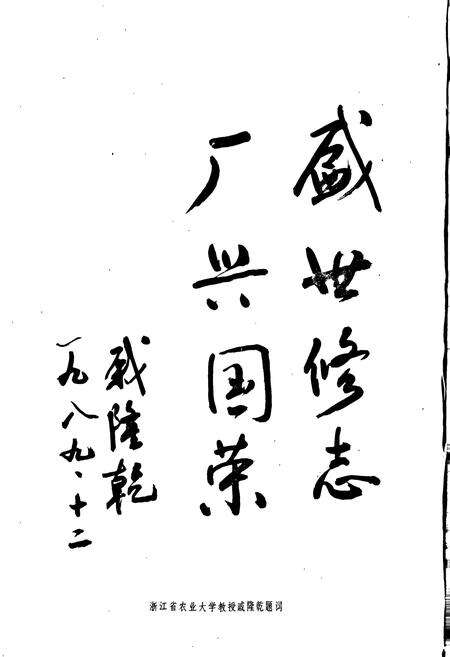 盛世修志
厂兴国荣
戚隆乾
一九八九.十二
浙江省农业大学教授戚隆乾题词